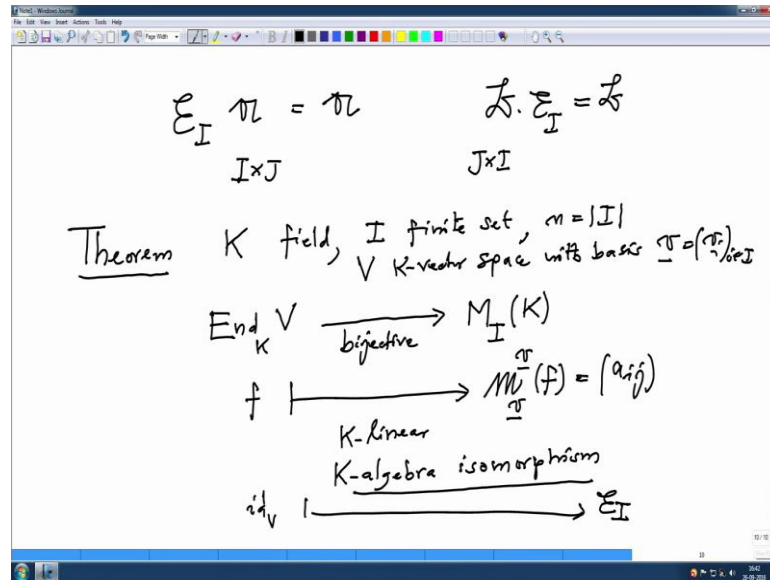 Note1 - Windows Journal
File Edit View Insert Actions Tools Help
Page Width
B I
ℰ_I 𝔄 = 𝔄    𝔅 · ℰ_I = 𝔅
I×J    J×I
Theorem K field, I finite set, n = |I|
V K-vector space with basis v = (v_i)_{i∈I}
End_K V → M_I(K)
bijective
f ↦ M^v_v(f) = (a_ij)
K-linear
K-algebra isomorphism
id_V ↦ ℰ_I
10/10
10
16:42